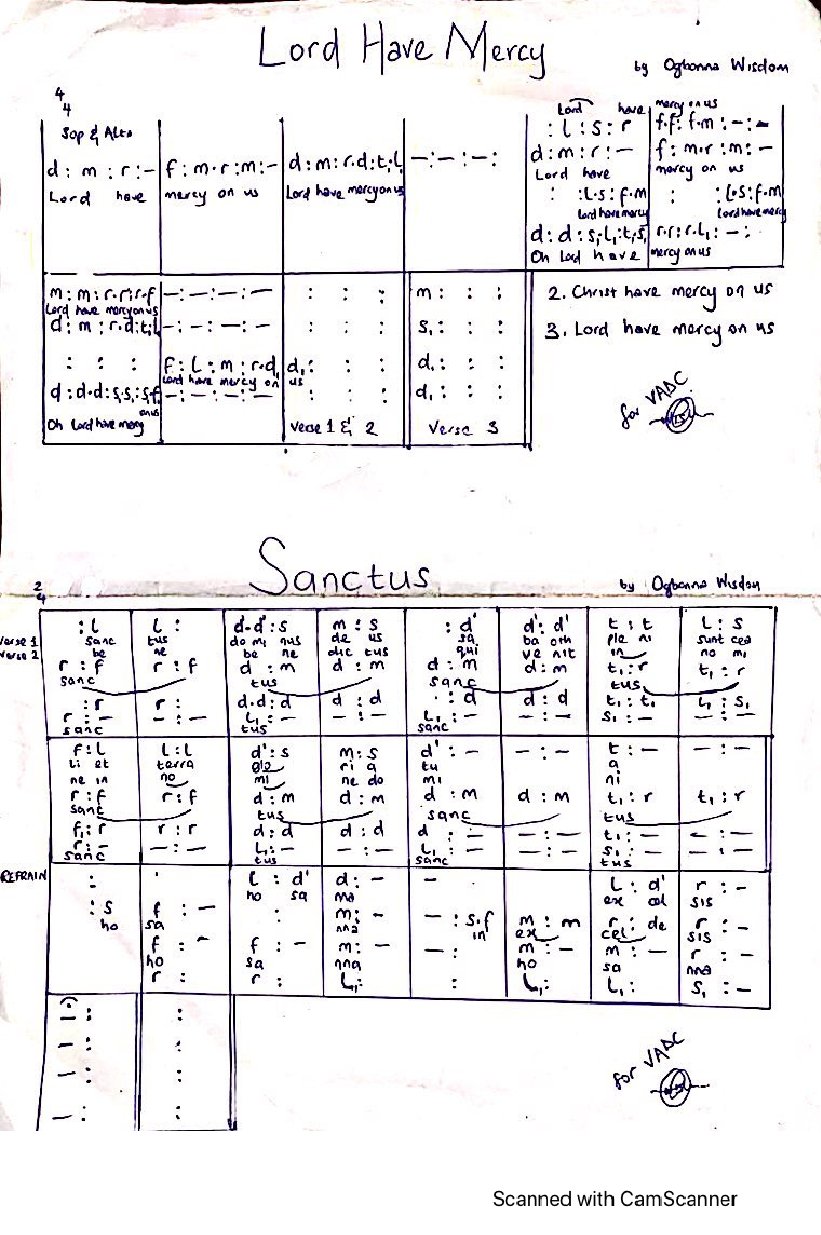 Lord Have Mercy
by Ogbonna Wisdom
4
4
Sop & Alto
Lord have
mercy on us
d : m : r : - f : m.r : m : - d : m : r.d : t, : l, - : - : - : -
Lord have mercy on us Lord have mercy on us
: l : s : r f.f : f.m : - : -
d : m : r : - f : m.r : m : -
Lord have mercy on us
: : l.s : f.m : : l.s : f.m
Lord have mercy Lord have mercy
d : d : s, l, : t, s, r.r : r.l, : - :
Oh Lord have mercy on us
m : m : r.r : r.f - : - : - : - : : : m : : :
Lord have mercy on us
d : m : r.d : t, l, - : - : - : - : : : s, : : :
: : : f : l : m : r.d, d, : : : d, : : :
Lord have mercy on us
d : d.d : s, s, : s, f, - : - : - : - : : : d, : : :
on us
Oh Lord have mercy Verse 1 & 2 Verse 3
2. Christ have mercy on us
3. Lord have mercy on us
for VADC
Sanctus
by Ogbonna Wisdom
2
4
: l l : d.d' : s m : s : d' d' : d' t : t l : s
Verse 1 Sanc tus do mi nus de us sa ba oth ple ni sunt cea
Verse 2 be ne be ne dic tus qui ve nit in no mi
r : f r : f d : m d : m d : m d : m t, : r t, : r
sanc tus sanc tus
: r r : d.d : d d : d : d d : d t, : t, l, : s,
r : - - : - l, : - - : - l, : - - : - s, : - - : -
sanc tus sanc
f : l l : l d' : s m : s d' : - - : - t : - - : -
li et terra glo ri a tu a
ne in no mi ne do mi ni
r : f r : f d : m d : m d : m d : m t, : r t, : r
sanc tus sanc tus
f, : r r : r d : d d : d d : - - : - t, : - - : -
r : - - : - l, : - - : - l, : - - : - s, : - - : -
sanc tus sanc tus
REFRAIN
: l : d' d : - - l : d' r : -
ho sa nna ex cel sis
: s f : - : m : - - : s.f m : m r : de r : -
ho sa nna in ex cel sis
f : - f : - m : - - : m : - m : - r : -
ho sa nna ho sa nna
r : r : l, : : l, : l, : s, : -
- : :
- : :
- : :
- : :
for VADC
Scanned with CamScanner